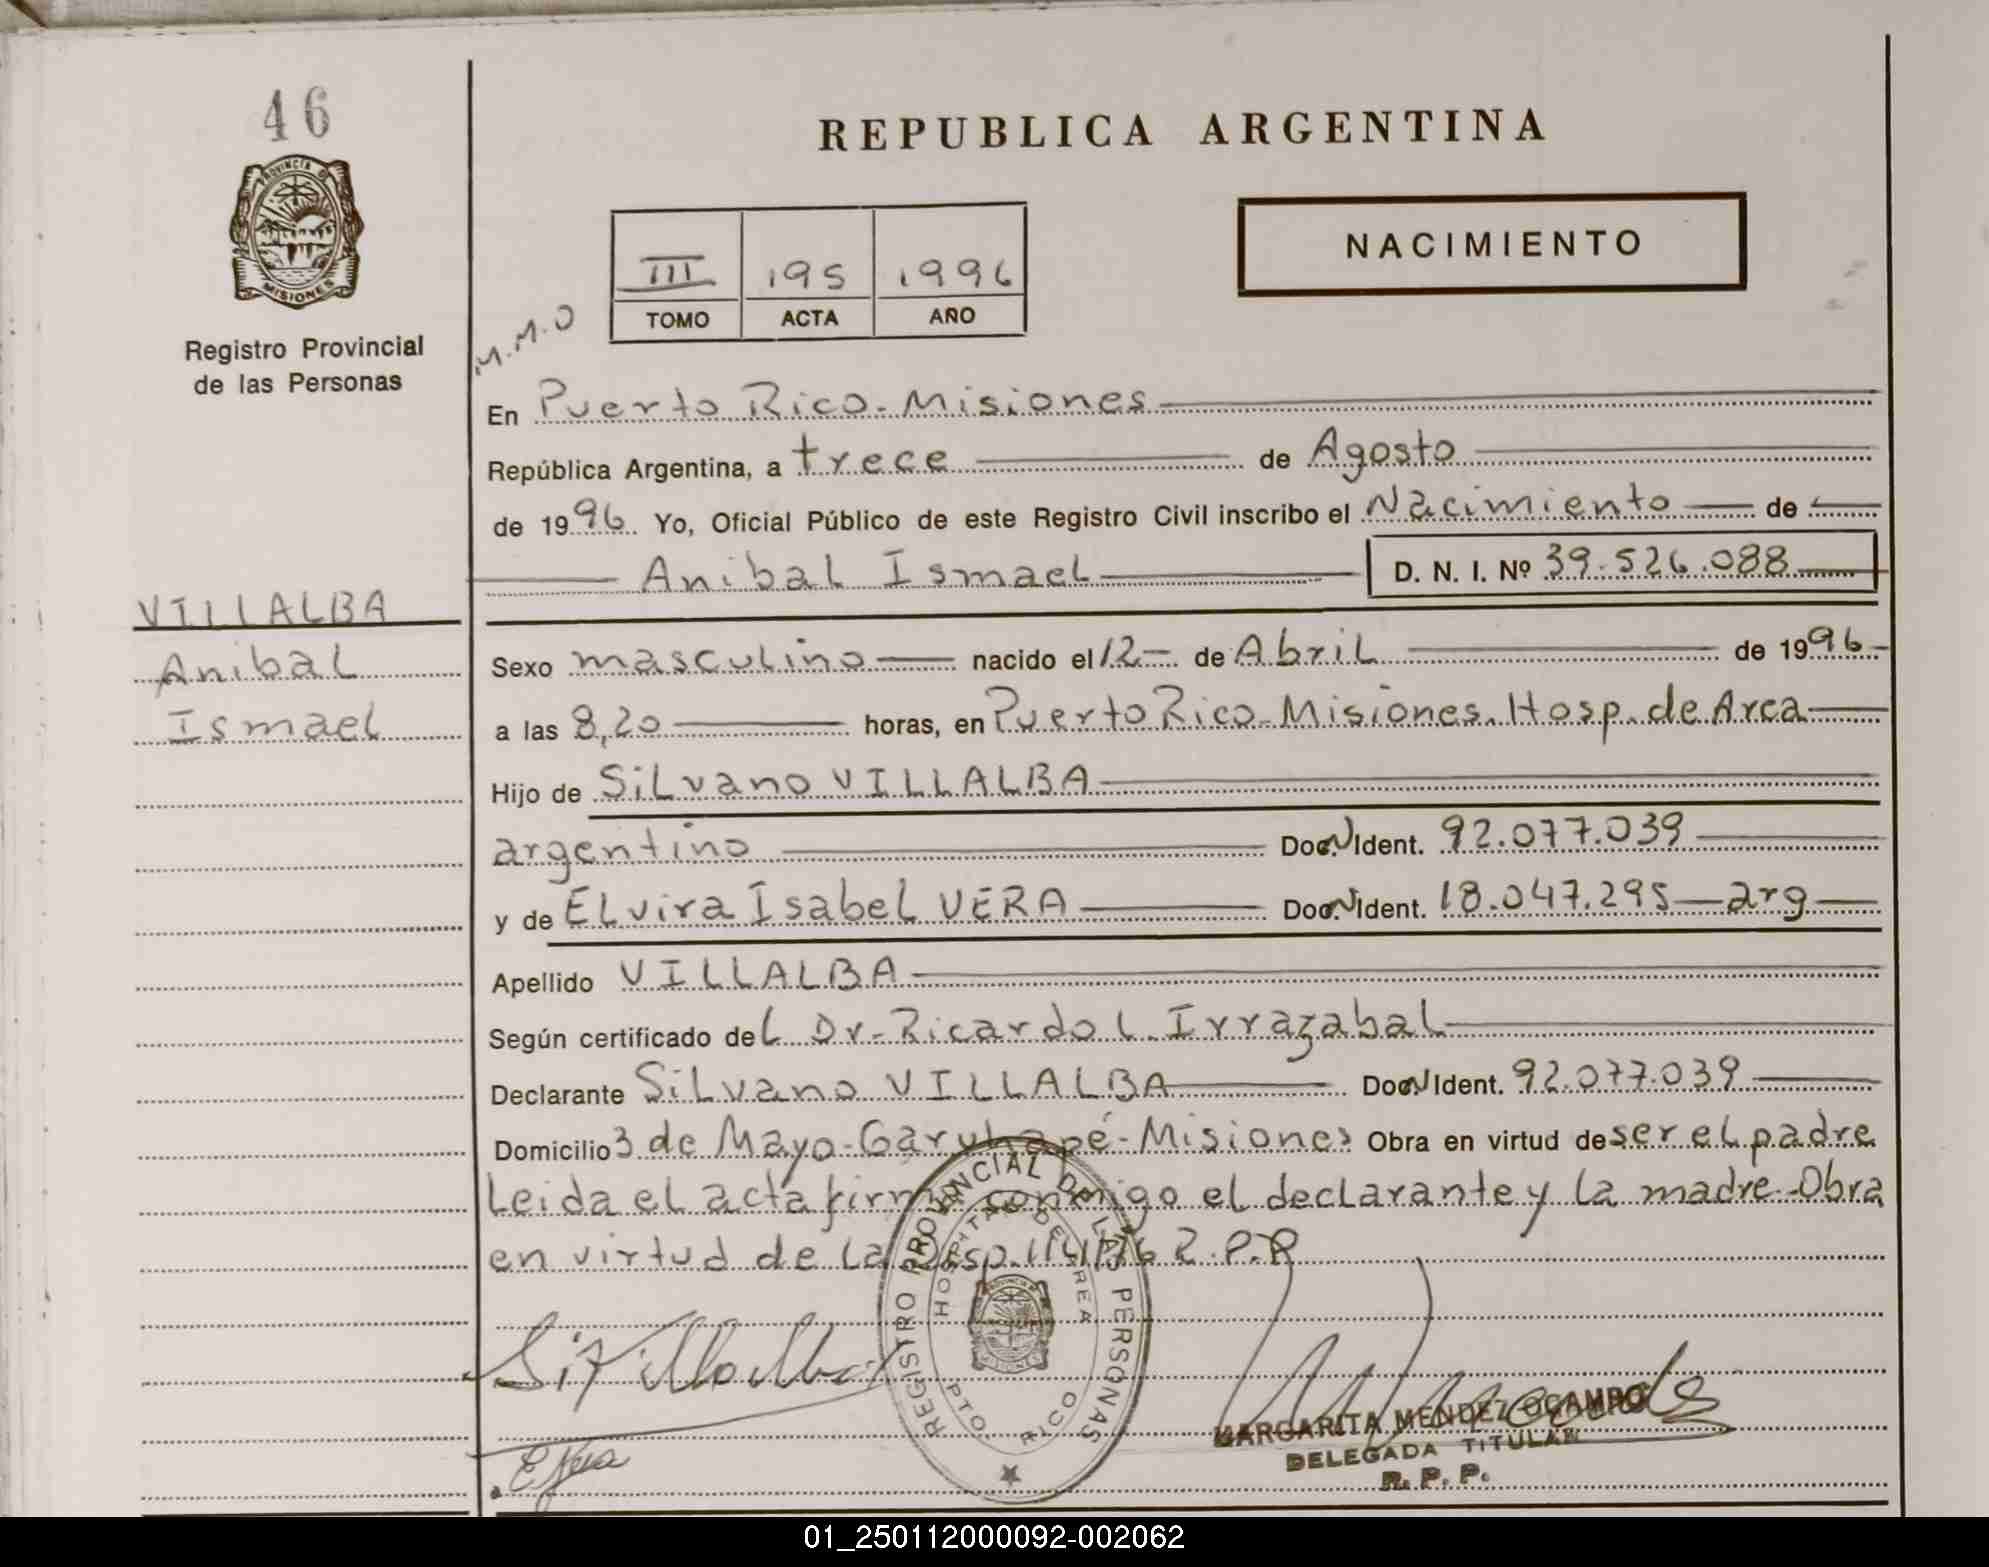 46
REPUBLICA ARGENTINA
PROVINCIA DE
MISIONES
Registro Provincial
de las Personas
III 195 1996
TOMO ACTA AÑO
NACIMIENTO
M.M.O
En Puerto Rico - Misiones
República Argentina, a trece de Agosto
de 1996 Yo, Oficial Público de este Registro Civil inscribo el Nacimiento de
Anibal Ismael D. N. I. Nº 39.526.088
VILLALBA
Anibal
Ismael
Sexo masculino nacido el 12 de Abril de 1996
a las 8,20 horas, en Puerto Rico - Misiones. Hosp. de Area
Hijo de Silvano VILLALBA
argentino Doc. N Ident. 92.077.039
y de Elvira Isabel VERA Doc. N Ident. 18.047.295 - arg
Apellido VILLALBA
Según certificado del Dr. Ricardo L. Irrazabal
Declarante Silvano VILLALBA Doc. N Ident. 92.077.039
Domicilio 3 de Mayo - Garuhapé - Misiones Obra en virtud de ser el padre
Leida el acta firma conmigo el declarante y la madre - Obra
en virtud de la Disp. R.P.P
REGISTRO PROVINCIAL DE LAS PERSONAS
HOSPITAL DE AREA
PTO. RICO
MARGARITA MENDEZ OCAMPO
DELEGADA TITULAR
R. P. P.
01_250112000092-002062